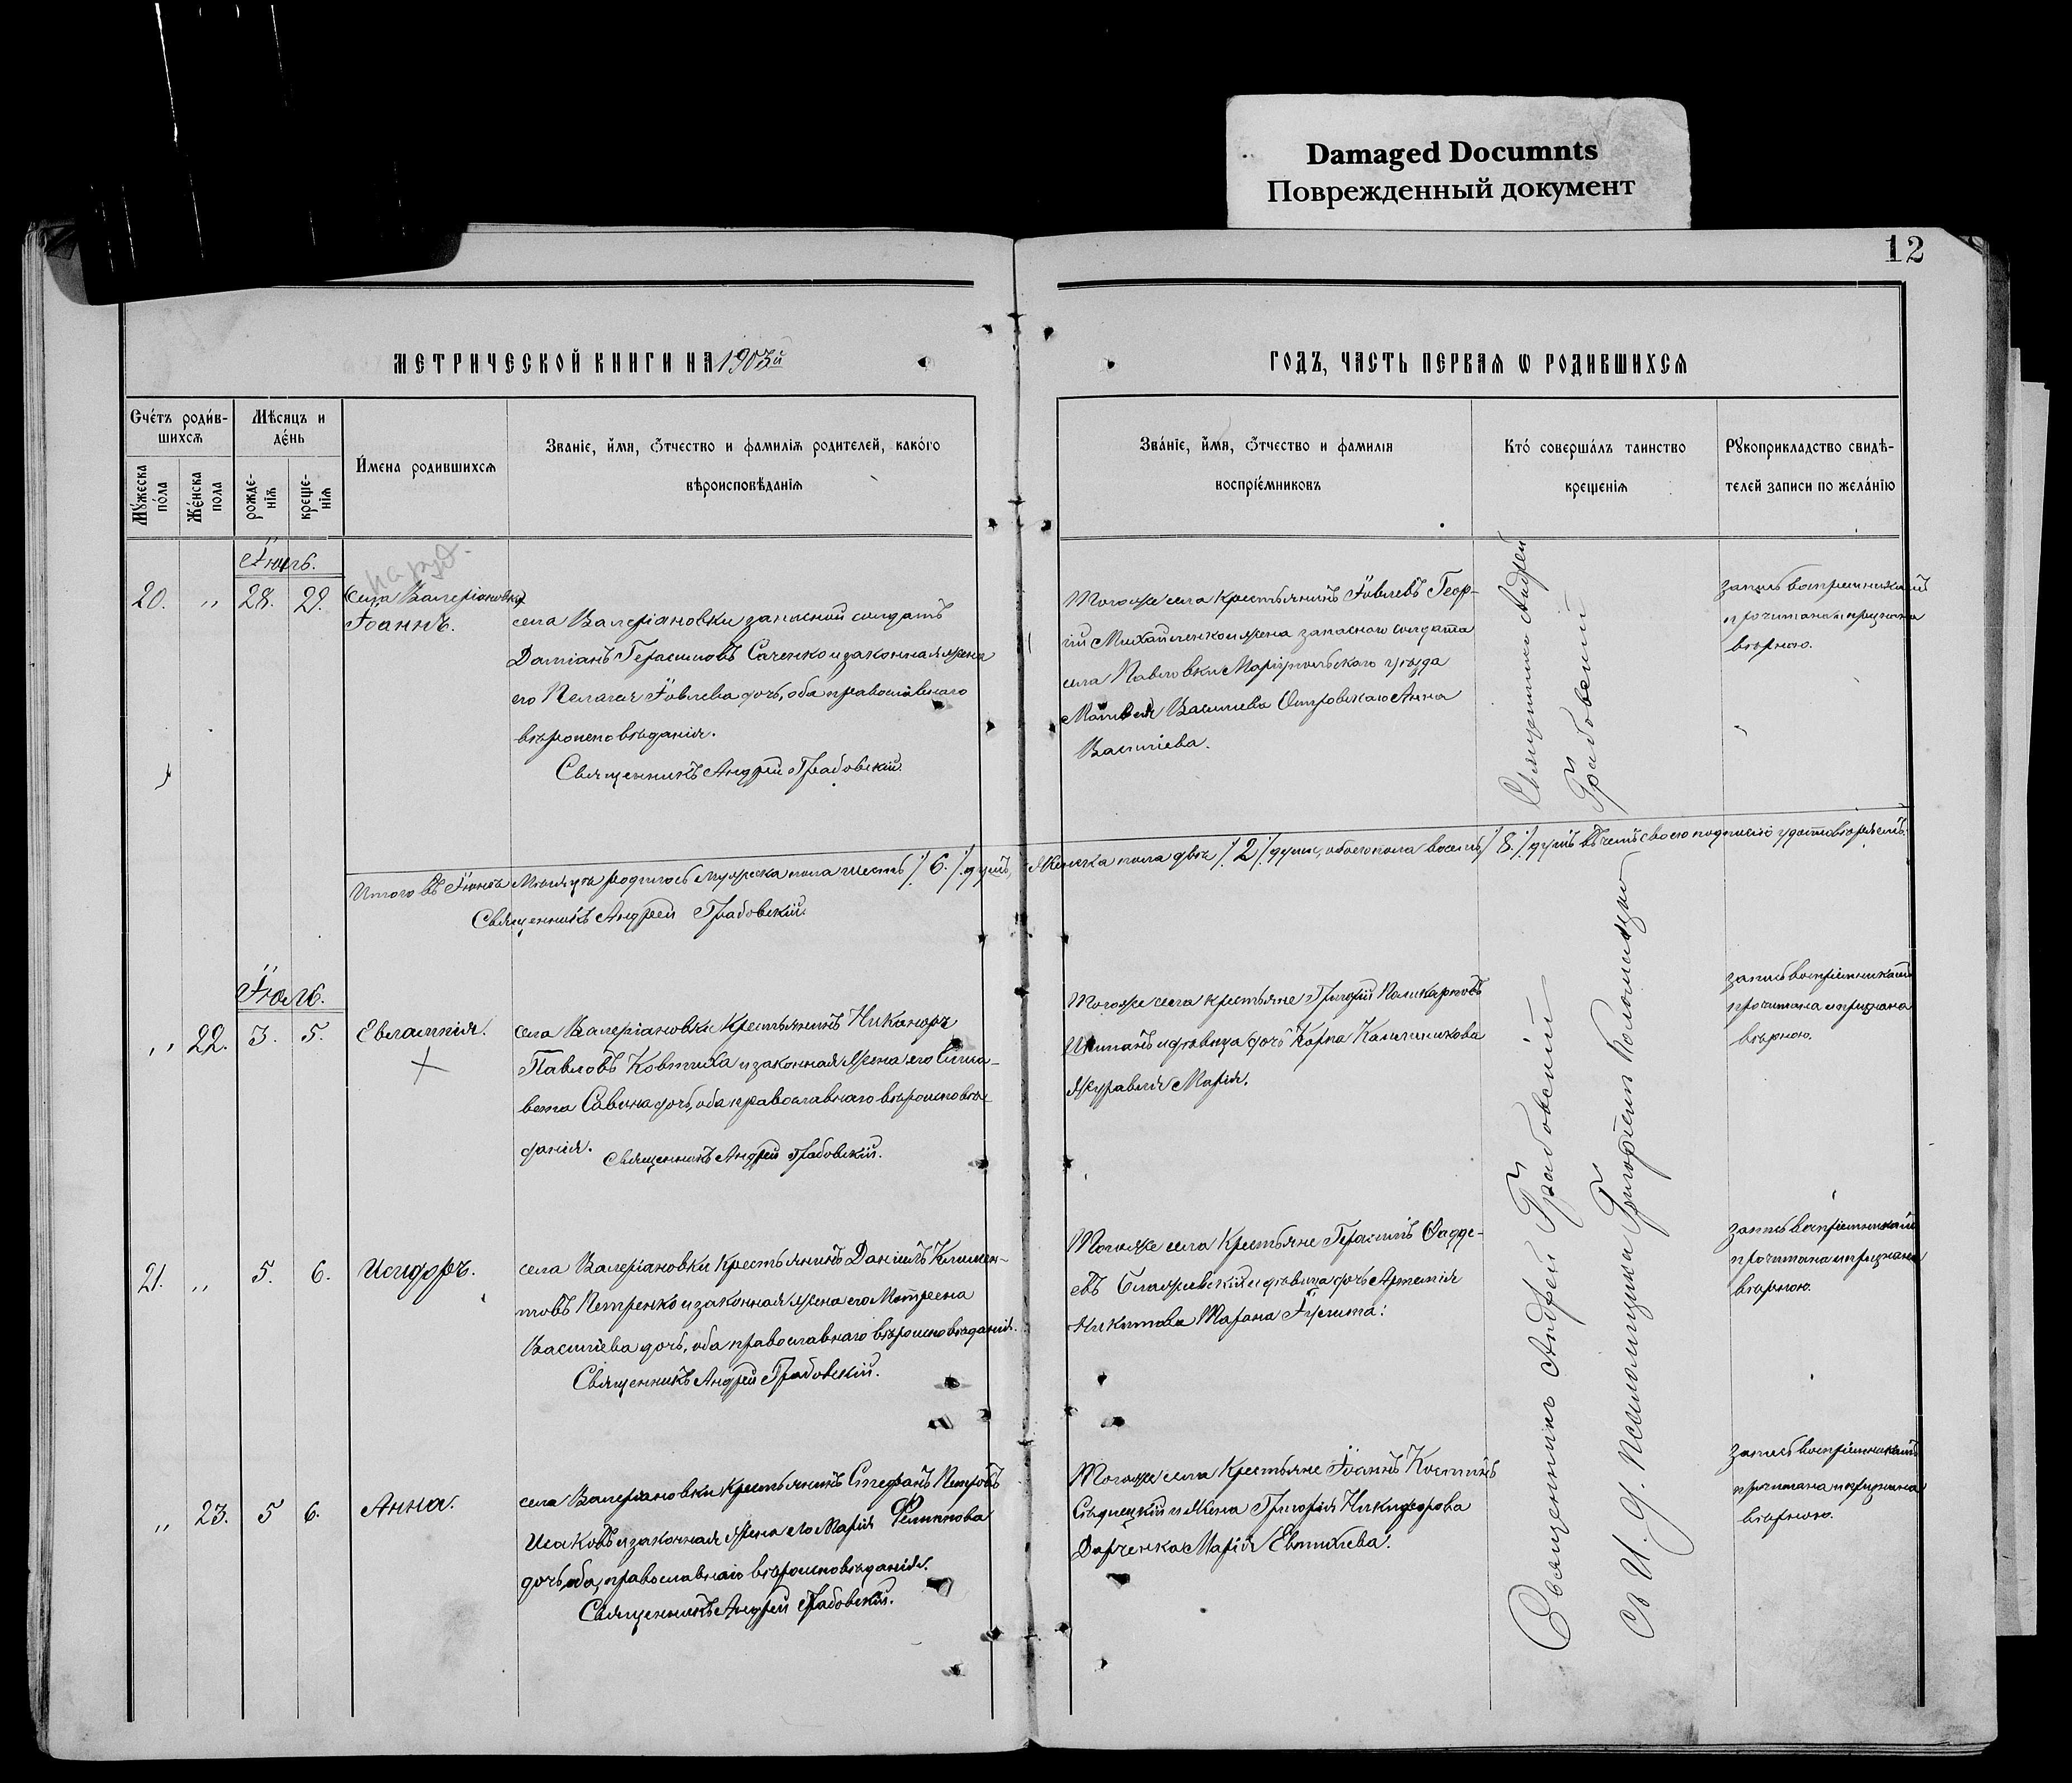 Damaged Documnts
Поврежденный документ
12
МЕТРИЧЕСКОЙ КНИГИ НА 1903й
ГОДЪ, ЧАСТЬ ПЕРВАЯ Ѡ РОДИВШИХСѦ
Счéтъ роди́в-
шихсѧ
Мѣсяцъ и
де́нь
Мꙋ́жеска
по́ла
Же́нска
пола
рожде-
нїѧ
креще-
нїѧ
И҆́мена родившихсѧ
Званїе, и҆́мя, ѻ҆́тчество и фамилїѧ родителей, како́го
вѣроисповѣданїѧ
Зва́нїе, и҆́мя, ѻ҆́тчество и фамилїя
воспрїе́мниковъ
Кто́ соверша́лъ таинство
крещенїѧ
Рꙋкоприкладство свидѣ-
телей записи по жела́нїю
Іюнь.
20. " 28. 29.
села Валеріановки
Іоаннъ.
села Валеріановки запасной солдатъ
Даміанъ Герасимовъ Саченко и законная жена
его Пелагея Іовлева дочь, оба православнаго
вѣроисповѣданія.
Священникъ Андрей Грабовскій.
Тогоже села крестьянинъ Іовлевъ Геор-
гій Михайленко и жена запаснаго солдата
села Павловки Маріупольскаго уѣзда
Матвея Васильева Островскаго Анна
Васильева.
Священникъ Андрей
Грабовскій
запись воспріемникамъ
прочитана и признана
вѣрною.
Итого въ Іюнѣ Мѣсяцѣ родилось мужеска пола шесть /6./ душъ, Женска пола двѣ /2/ души, обоего пола восемь /8./ душъ въ чемъ своею подписью удостовѣряемъ.
Священникъ Андрей Грабовскій.
Іюль.
" 22. 3. 5. Евлампія.
села Валеріановки Крестьянинъ Никаноръ
Павловъ Ковтиха и законная Жена его Елиса-
вета Савина дочь, оба православнаго вѣроисповѣ-
данія. Священникъ Андрей Грабовскій.
Тогоже села крестьяне Григорій Поликарповъ
и дѣвица дочь Карпа Калинникова
Журавля Марія.
запись воспріемникамъ
прочитана и признана
вѣрною.
21. " 5. 6. Исидоръ.
села Валеріановки Крестьянинъ Даніилъ Климен-
товъ Петренко и законная жена его Матрена
Васильева дочь, оба православнаго вѣроисповѣданія.
Священникъ Андрей Грабовскій.
Тогоже села Крестьяне Герасимъ Фадде-
евъ и дѣвица дочь Артемія
Никитова Тарана
запись воспріемникамъ
прочитана и признана
вѣрною.
" 23. 5 6. Анна.
села Валеріановки Крестьянинъ Стефанъ Петровъ
Исаковъ и законная жена его Марія Филиппова
дочь, оба, православнаго вѣроисповѣданія.
Священникъ Андрей Грабовскій.
Тогоже села Крестьяне Іоаннъ Костинъ
и Жена Григорія Никифорова
Марія Евтихіева.
запись воспріемникамъ
прочитана и признана
вѣрною.
Священникъ Андрей Грабовскій
съ И. д. Псаломщика Григоріемъ Коломійцемъ